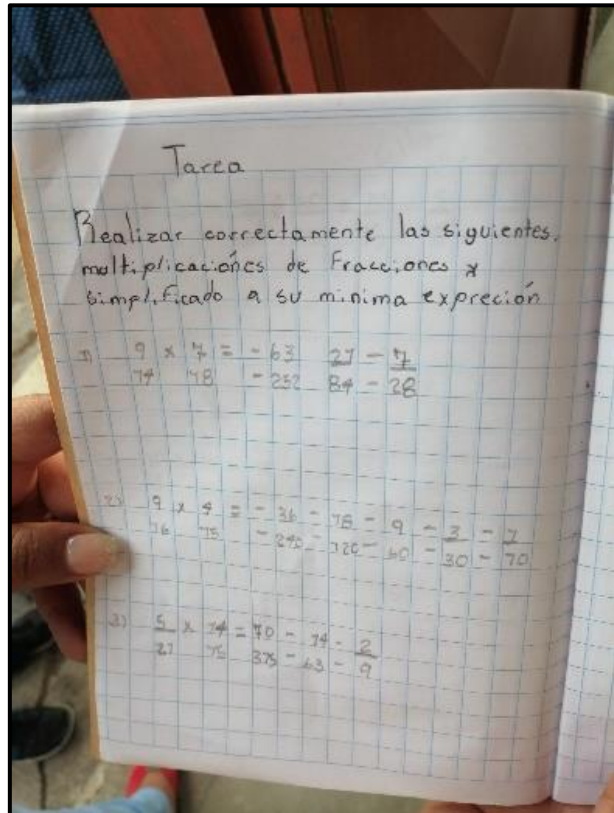 Tarea
Realizar correctamente las siguientes.
multiplicaciónes de Fracciones x
simplificado a su minima expreción
1) 9/14 x 7/18 = - 63/-252 21/84 - 7/28
2) 9/16 x 4/15 = - 36/-240 - 18/120 - 9/60 - 3/30 - 1/10
3) 5/21 x 14/15 = 70/315 - 14/63 - 2/9